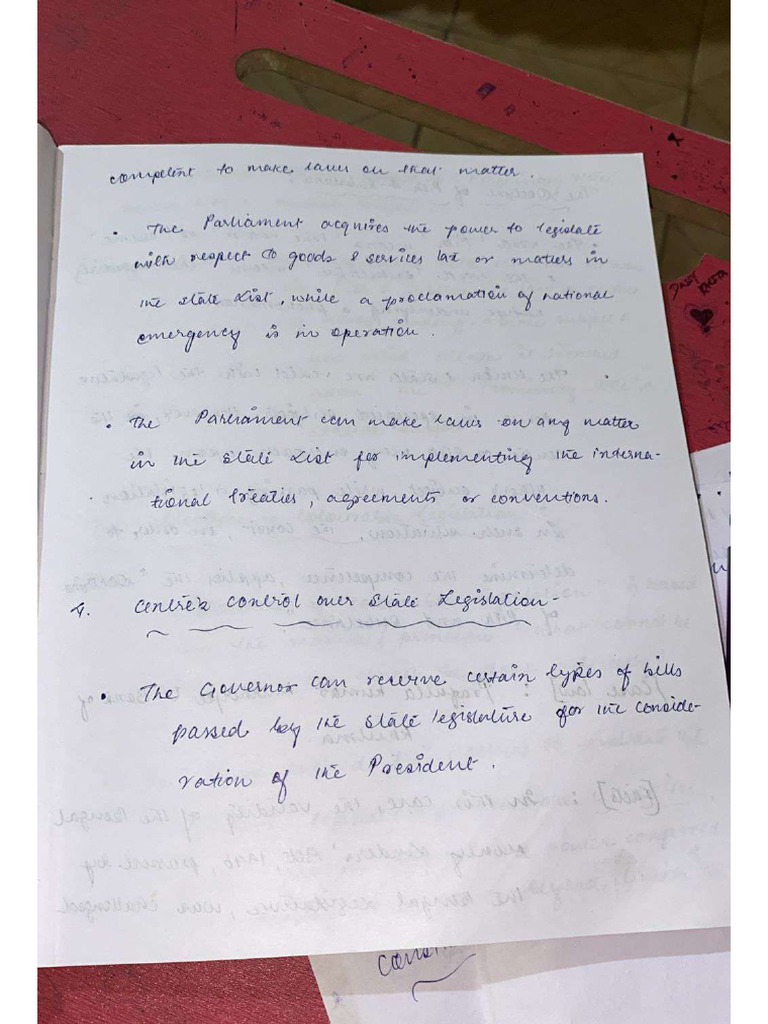 competent to make laws on that matter.
• The Parliament acquires the power to legislate
with respect to goods & services tax or matters in
the State List, while a proclamation of national
emergency is in operation.
• The Parliament can make laws on any matter
in the State List for implementing the interna-
tional treaties, agreements or conventions.
4. Centre's control over State Legislation -
• The Governor can reserve certain types of bills
passed by the State legislature for the conside-
ration of the President.